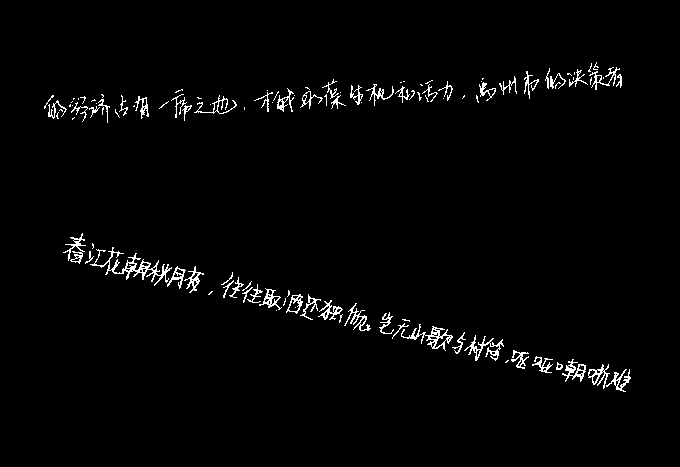 的经济占有一席之地，才能永葆生机和活力，禹州市的决策者
春江花朝秋月夜，往往取酒还独倾。岂无山歌与村笛，呕哑嘲哳难